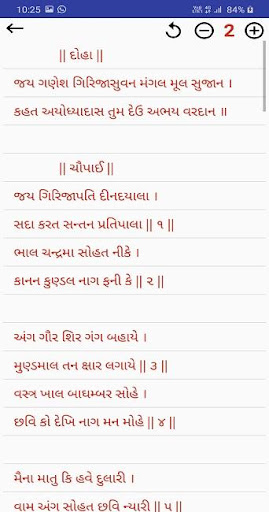 10:25
84%
2
|| દોહા ||
જય ગણેશ ગિરિજાસુવન મંગલ મૂલ સુજાન ।
કહત અયોધ્યાદાસ તુમ દેઉ અભય વરદાન ॥
|| ચૌપાઈ ||
જય ગિરિજાપતિ દીનદયાલા ।
સદા કરત સન્તન પ્રતિપાલા || ૧ ||
ભાલ ચન્દ્રમા સોહત નીકે ।
કાનન કુણ્ડલ નાગ ફની કે || ૨ ||
અંગ ગૌર શિર ગંગ બહાયે ।
મુણ્ડમાલ તન ક્ષાર લગાયે || ૩ ||
વસ્ત્ર ખાલ બાઘમ્બર સોહે ।
છવિ કો દેખિ નાગ મન મોહે || ૪ ||
મૈના માતુ કિ હવે દુલારી ।
વામ અંગ સોહત છવિ ન્યારી || ૫ ||